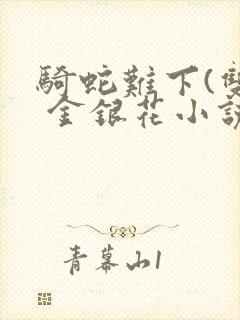 騎蛇難下(雙
金銀花小說
青幕山1